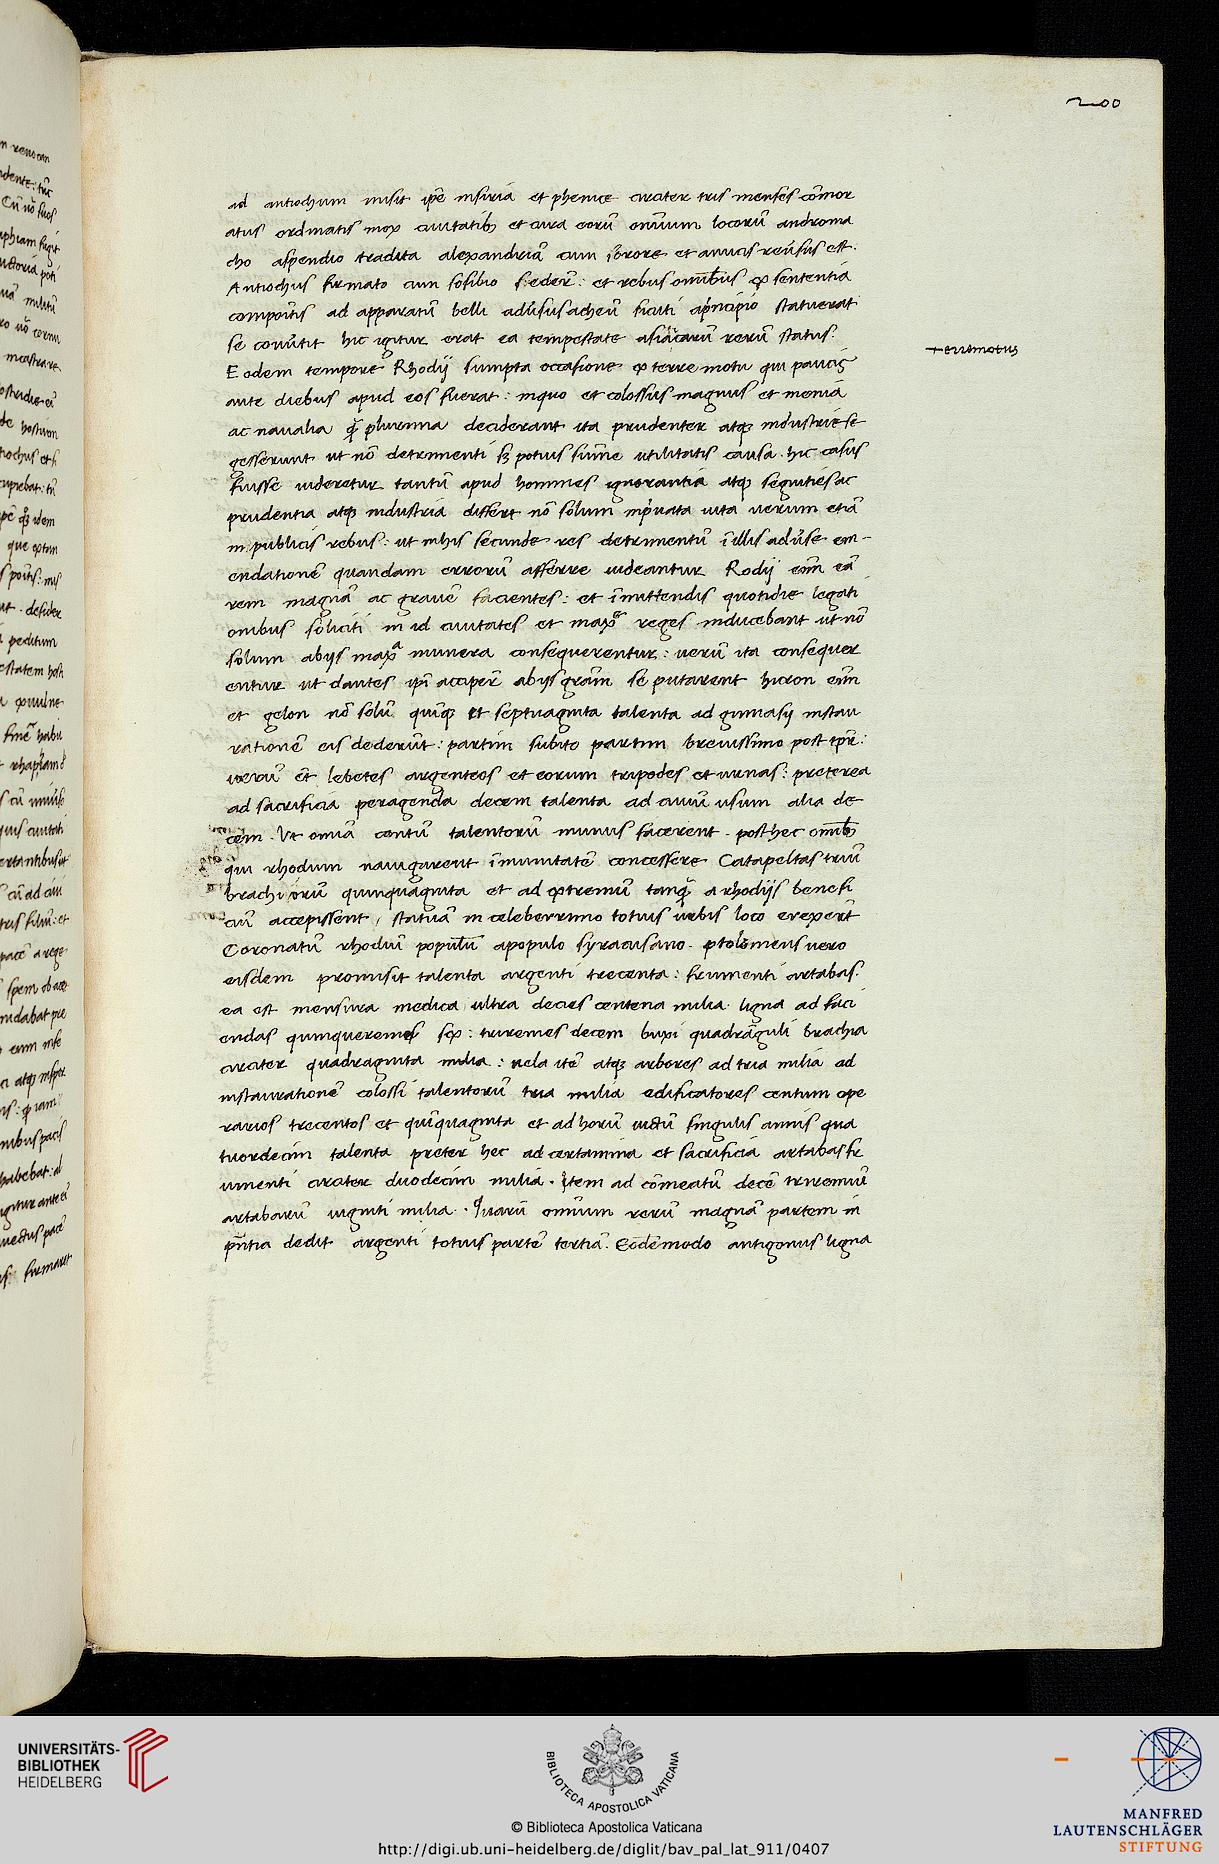 200
ad antiochum misit ip̄e insiria et phenice circiter tris menses cōmor
atus ordinatis mox ciuitatib; et cura eorū omnium locorū androma
cho aspendio tradita alexandriā cum sorore et amicis reūsus est.
Antiochus firmato cum sosibio federe: et rebus omībus ex sententia
compositis ad apparatū belli adūsus acheū sicuti aprīncipio statuerat
se conūtit hic igitur erat ea tempestate asiaticarū rerū status.
Eodem tempore Rhodij sumpta occasione ex terre motu qui paucis
ante diebus apud eos fuerat: inquo et colossus magnus et menia
ac naualia q̄ plurima deciderant ita prudenter atq; industrie se
gesserunt ut nō detrimenti s; potius sūme utilitatis causa. hic casus
fuisse uideretur tantū apud homines ignorantia atq; segnities ac
prudentia atq; industria differt nō solum inpriuata uita uerum etiā
in publicis rebus: ut inhis secunde res detrimentū īillis adūse em-
endationē quandam errorū afferre uideantur Rodij enīm eā
rem magnā ac grauē facientes: et īmittendis quotidie legati
onibus soliciti in id ciuitates et maxa reges inducebant ut nō
solum abijs maxa munera consequerentur: uerū ita consequer
entur ut dantes ipī acciper abijs grām se putarent hieron enīm
et gelon nō solū quinq; et septuaginta talenta ad gimnasij instau
rationē eis dederūt: partim subito partim breuissimo post tpr̄:
uerū et lebetes argenteos et eorum tripodes et urnas: preterea
ad sacrificia peragenda decem talenta ad ciuiū usum alia de-
cem. Ut omīa centū talentorū munus facerent. post hec omīb;
qui rhodum nauigarent īmunitatē concessere Catapeltas triū
brachiorū quinquaginta et ad extremū tanq̄ a rhodijs benefi
ciū accepissent, statuā in celeberrimo totius urbis loco erexerūt
Coronatū rhodiū populū apopulo syracusano. ptolomeus uero
eisdem promisit talenta argenti trecenta: frumenti artabas.
ea est mensura medica ultra decies centena milia. ligna ad faci
endas quinqueremes sex: triremes decem buxi quadrāguli brachia
circiter quadraginta milia: uela itē atq; arbores ad tria milia ad
instaurationē colossi talentorū tria milia edificatores centum ope
rarios trecentos et quīquaginta et ad horū uictū singulis annis qua
tuordecim talenta preter hec ad certamina et sacrificia artabas fr
umenti circiter duodecim milia. Item ad cōmeatū decē triremiū
artabarū uiginti milia. Quarū omīum rerū magnā partem in
pn̄tia dedit argenti totius partē tertiā. Eodēmodo antigonus ligna
terremotus
UNIVERSITÄTS-
BIBLIOTHEK
HEIDELBERG
BIBLIOTECA APOSTOLICA VATICANA
© Biblioteca Apostolica Vaticana
http://digi.ub.uni-heidelberg.de/diglit/bav_pal_lat_911/0407
MANFRED
LAUTENSCHLÄGER
STIFTUNG